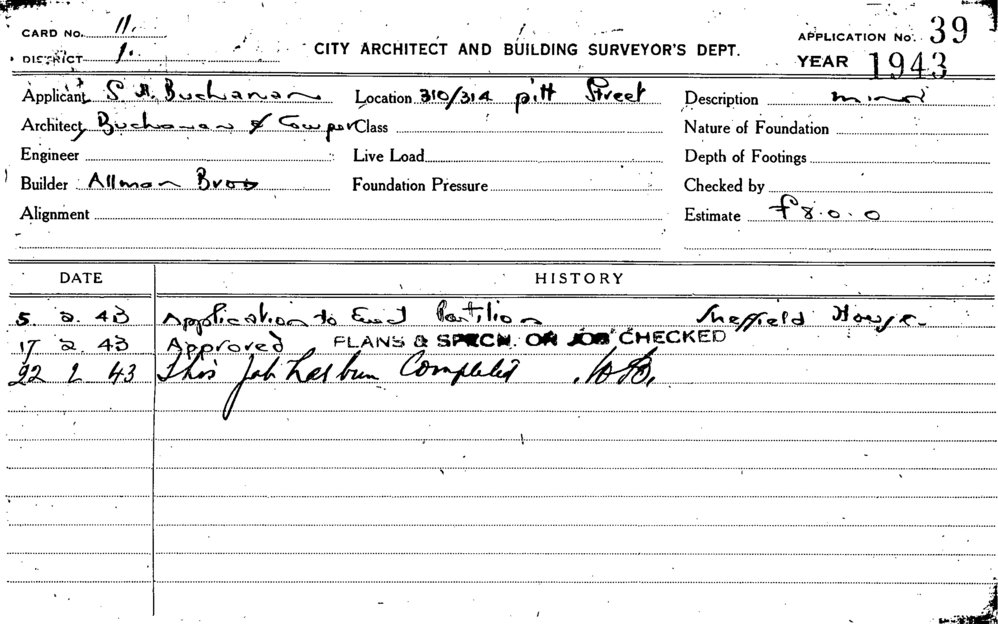 CARD No. 11.
DISTRICT 1.
CITY ARCHITECT AND BUILDING SURVEYOR'S DEPT.
APPLICATION No. 39
YEAR 1943
Applicant S A. Buchanan Location 310/314 pitt Street Description minor
Architect Buchanan & Cowper Class Nature of Foundation
Engineer Live Load Depth of Footings
Builder Allman Bros Foundation Pressure Checked by
Alignment Estimate £8.0.0
DATE HISTORY
5. 2. 43 Application to Erect Partition Sheffield House.
17 2 43 Approved PLANS & SPECN. OR JOB CHECKED
22 2 43 This job has been Completed